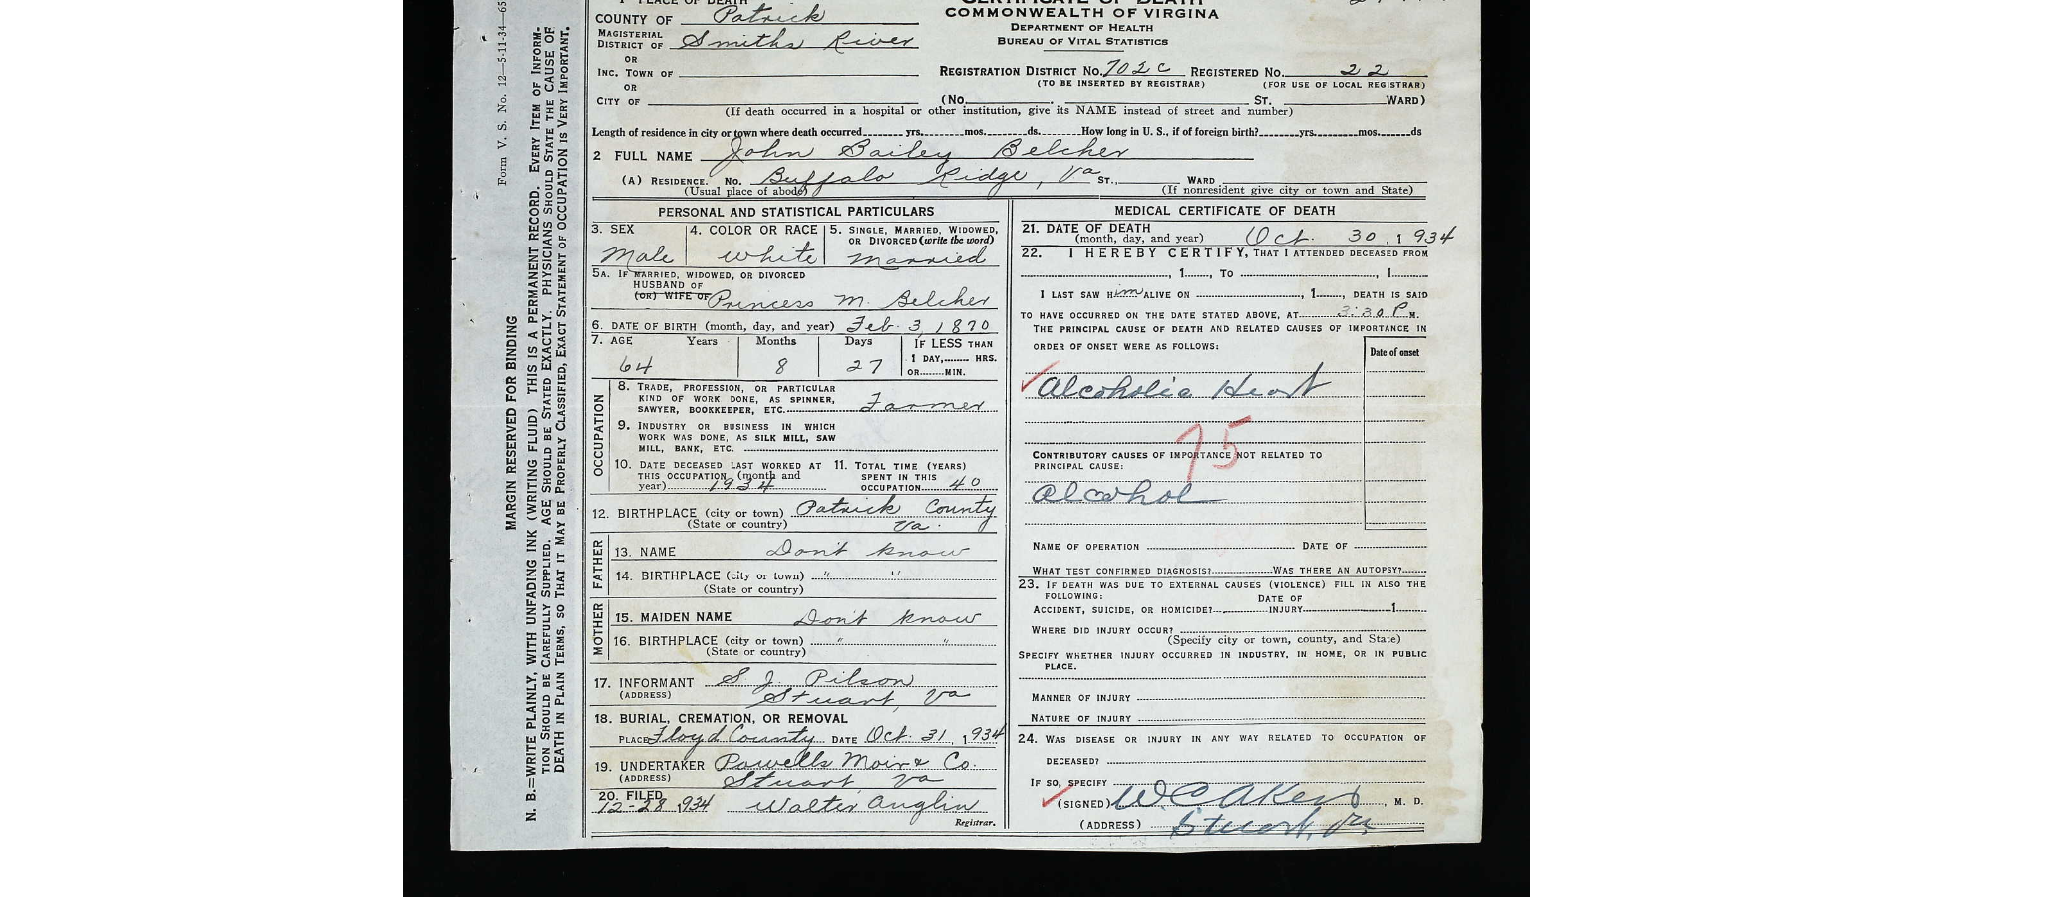 COUNTY OF Patrick
MAGISTERIAL
DISTRICT OF Smiths River
OR
INC. TOWN OF
OR
CITY OF
COMMONWEALTH OF VIRGINIA
DEPARTMENT OF HEALTH
BUREAU OF VITAL STATISTICS
REGISTRATION DISTRICT No. 702c REGISTERED No. 22
(TO BE INSERTED BY REGISTRAR) (FOR USE OF LOCAL REGISTRAR)
(No. ST. WARD)
(If death occurred in a hospital or other institution, give its NAME instead of street and number)
Length of residence in city or town where death occurred yrs. mos. ds. How long in U. S., if of foreign birth? yrs. mos. ds
2 FULL NAME John Bailey Belcher
(A) RESIDENCE. No. Buffalo Ridge, Va ST., WARD
(Usual place of abode) (If nonresident give city or town and State)
PERSONAL AND STATISTICAL PARTICULARS
3. SEX 4. COLOR OR RACE 5. SINGLE, MARRIED, WIDOWED,
OR DIVORCED (write the word)
Male white married
5A. IF MARRIED, WIDOWED, OR DIVORCED
HUSBAND OF
(OR) WIFE OF Princess M. Belcher
6. DATE OF BIRTH (month, day, and year) Feb. 3, 1870
7. AGE Years Months Days IF LESS THAN
1 DAY, HRS.
64 8 27 OR MIN.
OCCUPATION
8. TRADE, PROFESSION, OR PARTICULAR
KIND OF WORK DONE, AS SPINNER,
SAWYER, BOOKKEEPER, ETC. Farmer
9. INDUSTRY OR BUSINESS IN WHICH
WORK WAS DONE, AS SILK MILL, SAW
MILL, BANK, ETC.
10. DATE DECEASED LAST WORKED AT 11. TOTAL TIME (YEARS)
THIS OCCUPATION (month and SPENT IN THIS
year) 1934 OCCUPATION 40
12. BIRTHPLACE (city or town) Patrick County
(State or country) Va.
FATHER
13. NAME Don't know
14. BIRTHPLACE (city or town) " "
(State or country)
MOTHER
15. MAIDEN NAME Don't know
16. BIRTHPLACE (city or town) " "
(State or country)
17. INFORMANT S. J. Pilson
(ADDRESS) Stuart, Va
18. BURIAL, CREMATION, OR REMOVAL
PLACE Floyd County DATE Oct. 31, 1934
19. UNDERTAKER Powells Moir & Co.
(ADDRESS) Stuart Va
20. FILED
12-28 1934 Walter Anglin
Registrar.
MEDICAL CERTIFICATE OF DEATH
21. DATE OF DEATH
(month, day, and year) Oct. 30, 1934
22. I HEREBY CERTIFY, THAT I ATTENDED DECEASED FROM
, 1 , TO , 1
I LAST SAW Him ALIVE ON , 1 , DEATH IS SAID
TO HAVE OCCURRED ON THE DATE STATED ABOVE, AT 3:30 P M.
THE PRINCIPAL CAUSE OF DEATH AND RELATED CAUSES OF IMPORTANCE IN
ORDER OF ONSET WERE AS FOLLOWS:
Date of onset
Alcoholic Heart
75
CONTRIBUTORY CAUSES OF IMPORTANCE NOT RELATED TO
PRINCIPAL CAUSE:
Alcohol
NAME OF OPERATION DATE OF
WHAT TEST CONFIRMED DIAGNOSIS? WAS THERE AN AUTOPSY?
23. IF DEATH WAS DUE TO EXTERNAL CAUSES (VIOLENCE) FILL IN ALSO THE
FOLLOWING: DATE OF
ACCIDENT, SUICIDE, OR HOMICIDE? INJURY 1
WHERE DID INJURY OCCUR?
(Specify city or town, county, and State)
SPECIFY WHETHER INJURY OCCURRED IN INDUSTRY, IN HOME, OR IN PUBLIC
PLACE.
MANNER OF INJURY
NATURE OF INJURY
24. WAS DISEASE OR INJURY IN ANY WAY RELATED TO OCCUPATION OF
DECEASED?
IF SO, SPECIFY
(SIGNED) W C Akers, M. D.
(ADDRESS) Stuart, Va
Form V. S. No. 12—5-11-34—65
MARGIN RESERVED FOR BINDING
N. B.=WRITE PLAINLY, WITH UNFADING INK (WRITING FLUID) THIS IS A PERMANENT RECORD. EVERY ITEM OF INFORM-
TION SHOULD BE CAREFULLY SUPPLIED. AGE SHOULD BE STATED EXACTLY. PHYSICIANS SHOULD STATE THE CAUSE OF
DEATH IN PLAIN TERMS, SO THAT IT MAY BE PROPERLY CLASSIFIED, EXACT STATEMENT OF OCCUPATION IS VERY IMPORTANT.